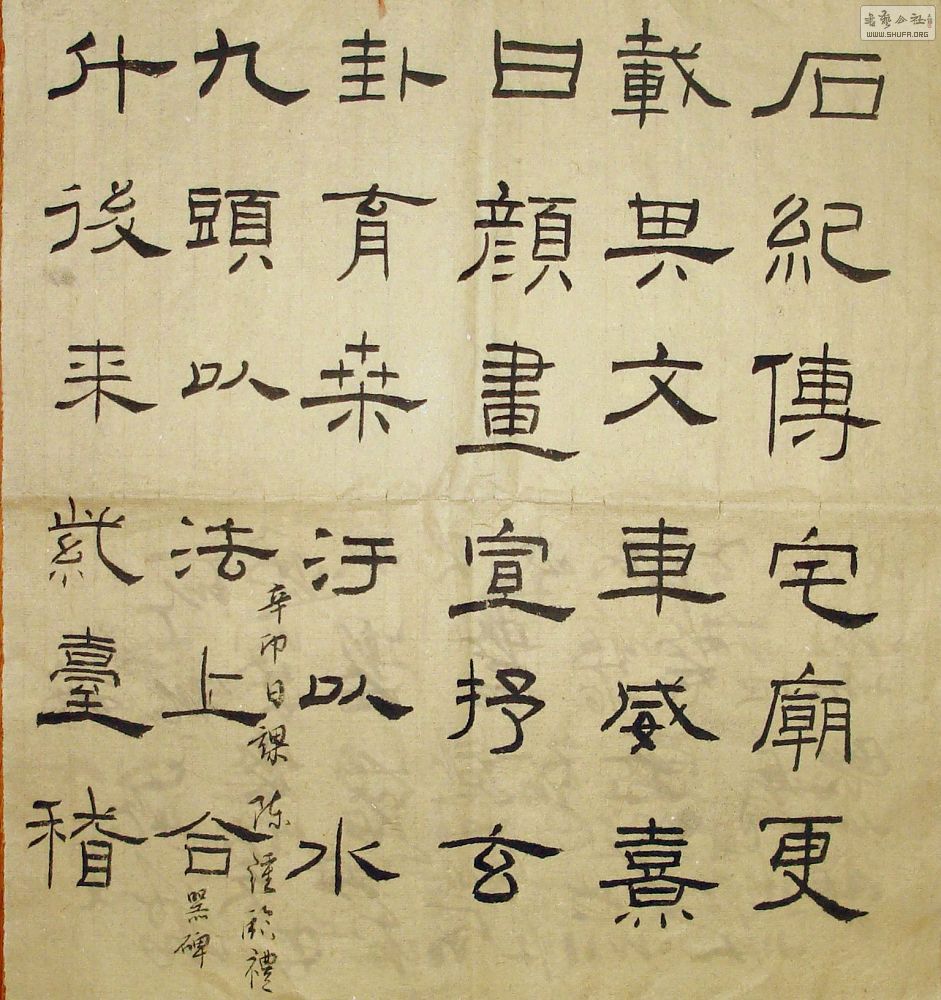 石紀傳宅廟更
載其文車威熹
曰顏畫宣抒玄
卦育桒汙以水
九頭以法上合
升後来紫臺稽
辛卯日課 陈謹臨禮
器碑
書藝公社
WWW.SHUFA.ORG